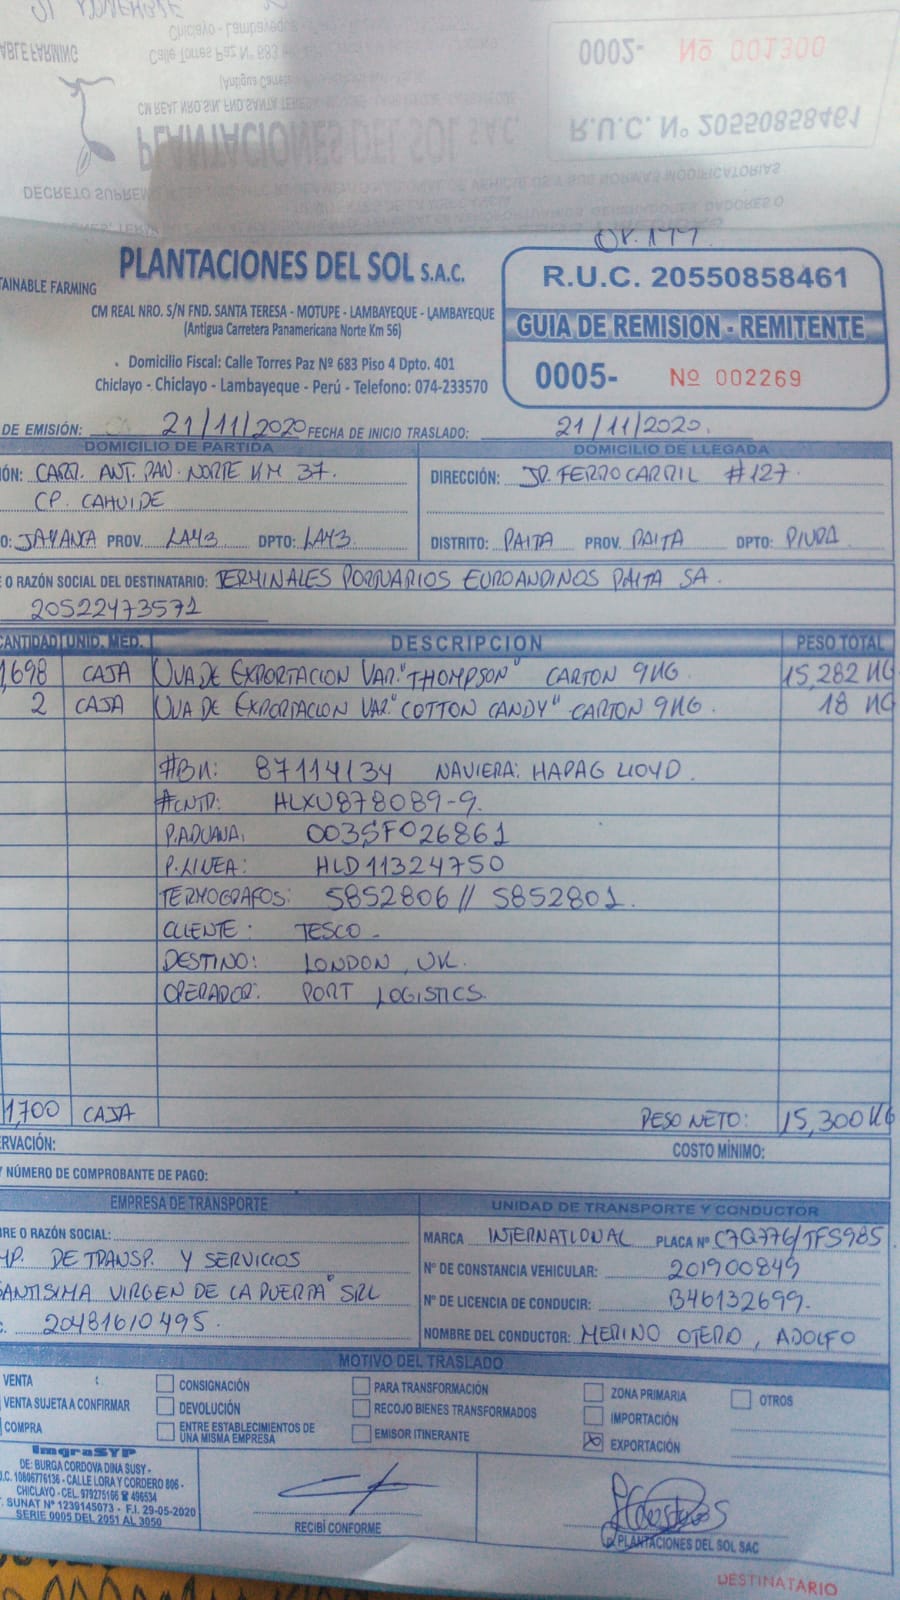 0002- Nº 001300
R.U.C. Nº 20550858461
PLANTACIONES DEL SOL S.A.C.
Calle Torres Paz Nº 683
Chiclayo - Lambayeque
OP. 177
TAINABLE FARMING
PLANTACIONES DEL SOL S.A.C.
CM REAL NRO. S/N FND. SANTA TERESA - MOTUPE - LAMBAYEQUE - LAMBAYEQUE
(Antigua Carretera Panamericana Norte Km 56)
Domicilio Fiscal: Calle Torres Paz Nº 683 Piso 4 Dpto. 401
Chiclayo - Chiclayo - Lambayeque - Perú - Telefono: 074-233570
R.U.C. 20550858461
GUIA DE REMISION - REMITENTE
0005- Nº 002269
DE EMISIÓN: 21/11/2020 FECHA DE INICIO TRASLADO: 21/11/2020.
DOMICILIO DE PARTIDA DOMICILIO DE LLEGADA
IÓN: CARR. ANT. PAN. NORTE KM 37. DIRECCIÓN: JR. FERROCARRIL #127.
CP. CAHUIDE
O: JAYANCA PROV. LAMB. DPTO: LAMB. DISTRITO: PAITA PROV. PAITA DPTO: PIURA
E O RAZÓN SOCIAL DEL DESTINATARIO: TERMINALES PORTUARIOS EUROANDINOS PAITA SA.
20522473571
CANTIDAD UNID. MED. DESCRIPCION PESO TOTAL
1,698 CAJA UVA DE EXPORTACION VAR. "THOMPSON" CARTON 9KG. 15,282 KG
2 CAJA UVA DE EXPORTACION VAR. "COTTON CANDY" CARTON 9KG. 18 KG
#BK: 87114134 NAVIERA: HAPAG LLOYD.
#CNTR: HLXU878089-9.
P.ADUANA: 003SF026861
P.LINEA: HLD11324750
TERMOGRAFOS: 5852806 // 5852801.
CLIENTE: TESCO.
DESTINO: LONDON, UK.
OPERADOR: PORT LOGISTICS.
1,700 CAJA PESO NETO: 15,300 KG
ERVACIÓN: COSTO MÍNIMO:
Y NÚMERO DE COMPROBANTE DE PAGO:
EMPRESA DE TRANSPORTE UNIDAD DE TRANSPORTE Y CONDUCTOR
BRE O RAZÓN SOCIAL: MARCA INTERNATIONAL PLACA Nº C7Q776/TFS985
MP. DE TRANSP. Y SERVICIOS Nº DE CONSTANCIA VEHICULAR: 201900849
SANTISIMA VIRGEN DE LA PUERTA" SRL Nº DE LICENCIA DE CONDUCIR: B46132699.
C. 20481610495. NOMBRE DEL CONDUCTOR: MERINO OTERO, ADOLFO
MOTIVO DEL TRASLADO
VENTA CONSIGNACIÓN PARA TRANSFORMACIÓN ZONA PRIMARIA OTROS
VENTA SUJETA A CONFIRMAR DEVOLUCIÓN RECOJO BIENES TRANSFORMADOS IMPORTACIÓN
COMPRA ENTRE ESTABLECIMIENTOS DE UNA MISMA EMPRESA EMISOR ITINERANTE X EXPORTACIÓN
ImgraSYP
DE: BURGA CORDOVA DINA SUSY -
U.C. 10806776136 - CALLE LORA Y CORDERO 806 -
CHICLAYO - CEL. 979275166 ☎ 496534
T. SUNAT Nº 1239145073 - F.I. 29-05-2020
SERIE 0005 DEL 2051 AL 3050
RECIBÍ CONFORME
p. PLANTACIONES DEL SOL SAC
DESTINATARIO